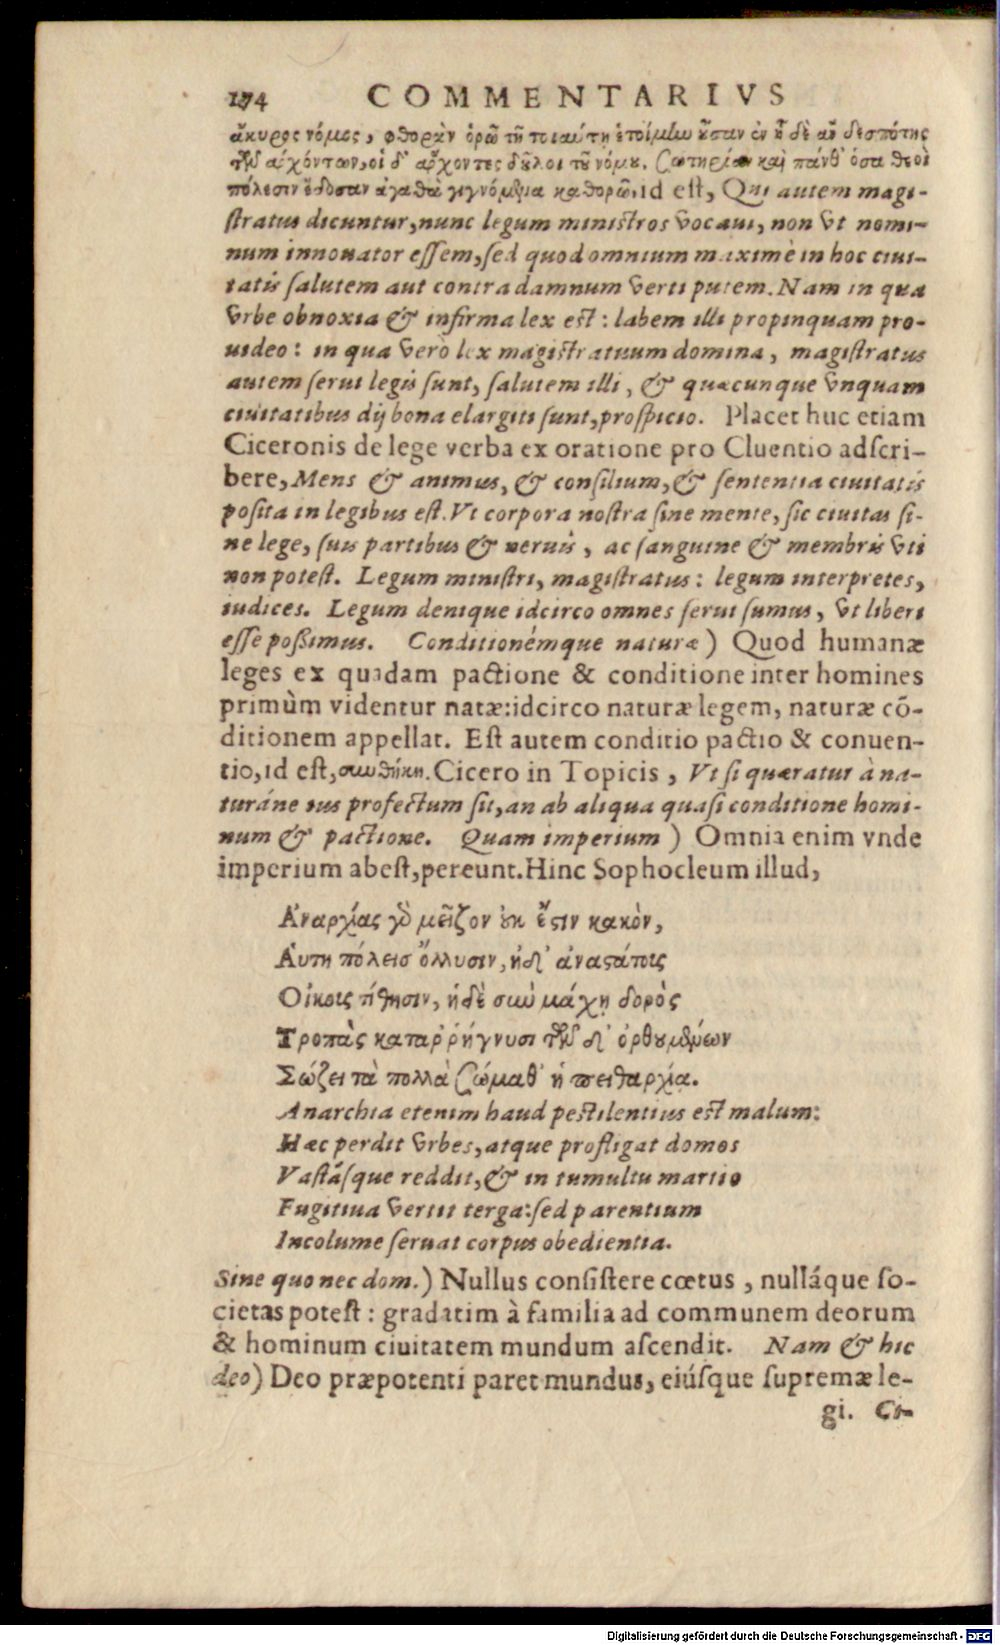 174 COMMENTARIVS
ἄκυρος νόμος, φθορὰν ὁρῶ τῇ τοιαύτῃ ἑτοίμην οὖσαν ἐν ᾗ δὲ ἂν δεσπότης
τῶν ἀρχόντων, οἱ δ' ἄρχοντες δοῦλοι τοῦ νόμου. σωτηρίαν καὶ πάνθ' ὅσα θεοὶ
πόλεσιν ἔδοσαν ἀγαθὰ γιγνόμενα καθορῶ. id est, Qui autem magi-
ſtratus dicuntur, nunc legum miniſtros vocaui, non vt nomi-
num innouator eſſem, ſed quod omnium maximè in hoc ciui-
tatis ſalutem aut contra damnum verti putem. Nam in qua
vrbe obnoxia & infirma lex est: labem illi propinquam pro-
uideo: in qua verò lex magiſtratuum domina, magiſtratus
autem ſerui legis ſunt, ſalutem illi, & quæcunque vnquam
ciuitatibus dij bona elargiti ſunt, proſpicio. Placet huc etiam
Ciceronis de lege verba ex oratione pro Cluentio adſcri-
bere, Mens & animus, & conſilium, & ſententia ciuitatis
poſita in legibus eſt. Vt corpora noſtra ſine mente, ſic ciuitas ſi-
ne lege, ſuis partibus & neruis, ac ſanguine & membris vti
non poteſt. Legum miniſtri, magiſtratus: legum interpretes,
iudices. Legum denique idcirco omnes ſerui ſumus, vt liberi
eſſe poßimus. Conditionémque naturæ) Quod humanæ
leges ex quadam pactione & conditione inter homines
primùm videntur natæ: idcirco naturæ legem, naturæ cō-
ditionem appellat. Eſt autem conditio pactio & conuen-
tio, id eſt, συνθήκη. Cicero in Topicis, Vt ſi quæratur à na-
turáne ius profectum ſit, an ab aliqua quaſi conditione homi-
num & pactione. Quam imperium) Omnia enim vnde
imperium abeſt, pereunt. Hinc Sophocleum illud,
Ἀναρχίας γὸ μεῖζον οὐκ ἔστιν κακὸν,
Αὐτη πόλεισ ὄλλυσιν, ἡδ' ἀναστάτοις
Οἴκοις τίθησιν, ἡδὲ σὺν μάχῃ δορὸς
Τροπὰς καταῤῥήγνυσι τῶν δ' ὀρθουμένων
Σώζει τὰ πολλὰ σώμαθ' ἡ πειθαρχία.
Anarchia etenim haud peſtilentius eſt malum:
Hæc perdit vrbes, atque profligat domos
Vaſtáſque reddit, & in tumultu martio
Fugitiua vertit terga: ſed parentium
Incolume ſeruat corpus obedientia.
Sine quo nec dom.) Nullus conſiſtere cœtus, nulláque ſo-
cietas poteſt: gradatim à familia ad communem deorum
& hominum ciuitatem mundum aſcendit. Nam & hic
deo) Deo præpotenti paret mundus, eiúſque ſupremæ le-
gi. Ci-
Digitalisierung gefördert durch die Deutsche Forschungsgemeinschaft - DFG